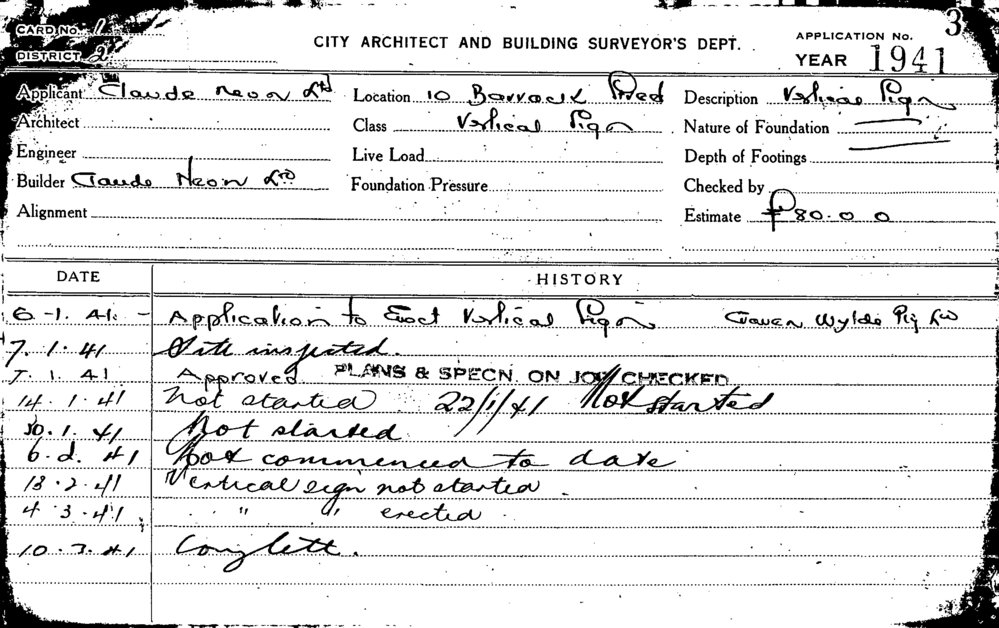 CARD No. 1
DISTRICT 2
CITY ARCHITECT AND BUILDING SURVEYOR'S DEPT.
APPLICATION No. 3
YEAR 1941
Applicant Claude Neon Ltd
Location 10 Barrack Street
Description Vertical Sign
Architect
Class Vertical Sign
Nature of Foundation
Engineer
Live Load
Depth of Footings
Builder Claude Neon Ltd
Foundation Pressure
Checked by
Alignment
Estimate £80.0 0
DATE HISTORY
6-1.41. - Application to Erect Vertical Sign
7.1.41 Site inspected.
7.1.41 Approved PLANS & SPECN. ON JOB CHECKED
14.1.41 Not started 22/1/41 Not started
30.1.41 Not started
6.2.41 Not commenced to date
13.2.41 Vertical sign not started.
4.3.41 " " erected
10.3.41 Complett.